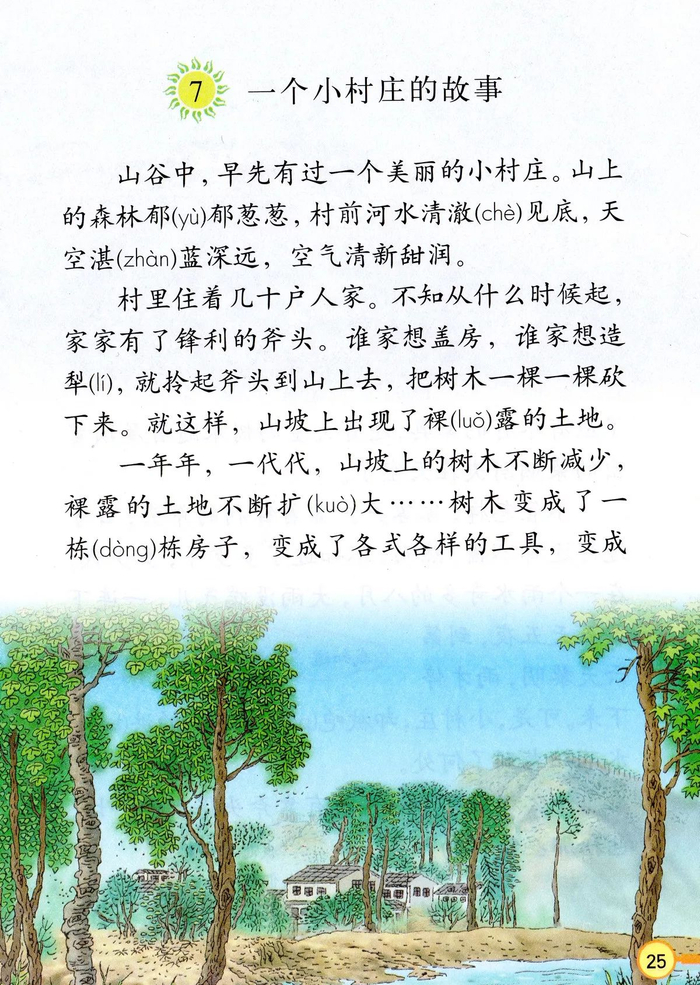 7 一个小村庄的故事
山谷中，早先有过一个美丽的小村庄。山上
的森林郁(yù)郁葱葱，村前河水清澈(chè)见底，天
空湛(zhàn)蓝深远，空气清新甜润。
村里住着几十户人家。不知从什么时候起，
家家有了锋利的斧头。谁家想盖房，谁家想造
犁(lí)，就拎起斧头到山上去，把树木一棵一棵砍
下来。就这样，山坡上出现了裸(luǒ)露的土地。
一年年，一代代，山坡上的树木不断减少，
裸露的土地不断扩(kuò)大……树木变成了一
栋(dòng)栋房子，变成了各式各样的工具，变成
25